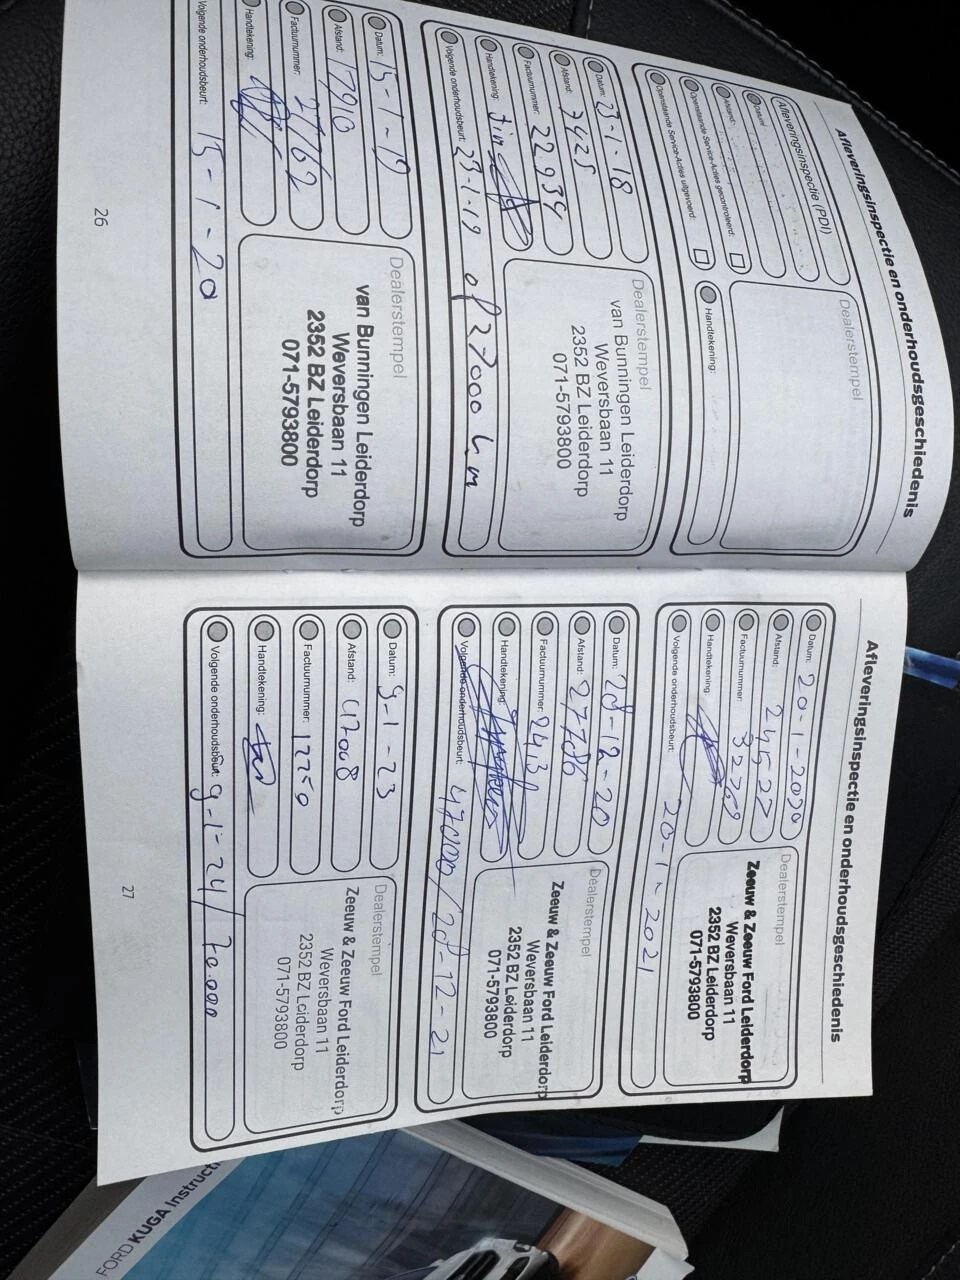 Afleveringsinspectie en onderhoudsgeschiedenis
Afleveringsinspectie (PDI)
Datum:
Afstand:
Openstaande Service-Acties gecontroleerd:
Openstaande Service-Acties uitgevoerd:
Dealerstempel
Handtekening:
Datum: 23-1-18
Afstand: 7425
Factuurnummer: 22939
Handtekening:
Volgende onderhoudsbeurt: 23-1-19 of 27000 km
Dealerstempel
van Bunningen Leiderdorp
Weversbaan 11
2352 BZ Leiderdorp
071-5793800
Datum: 15-1-19
Afstand: 17910
Factuurnummer: 27762
Handtekening:
Volgende onderhoudsbeurt: 15-1-20
Dealerstempel
van Bunningen Leiderdorp
Weversbaan 11
2352 BZ Leiderdorp
071-5793800
26
Afleveringsinspectie en onderhoudsgeschiedenis
Datum: 20-1-2020
Afstand: 24522
Factuurnummer:
Handtekening:
Volgende onderhoudsbeurt: 20-1-2021
Dealerstempel
Zeeuw & Zeeuw Ford Leiderdorp
Weversbaan 11
2352 BZ Leiderdorp
071-5793800
Datum: 28-12-20
Afstand: 27786
Factuurnummer: 2413
Handtekening:
Volgende onderhoudsbeurt: 47000/28-12-21
Dealerstempel
Zeeuw & Zeeuw Ford Leiderdorp
Weversbaan 11
2352 BZ Leiderdorp
071-5793800
Datum: 9-1-23
Afstand: 47008
Factuurnummer: 12250
Handtekening:
Volgende onderhoudsbeurt: 9-1-24/70.000
Dealerstempel
Zeeuw & Zeeuw Ford Leiderdorp
Weversbaan 11
2352 BZ Leiderdorp
071-5793800
27
FORD KUGA Instructi